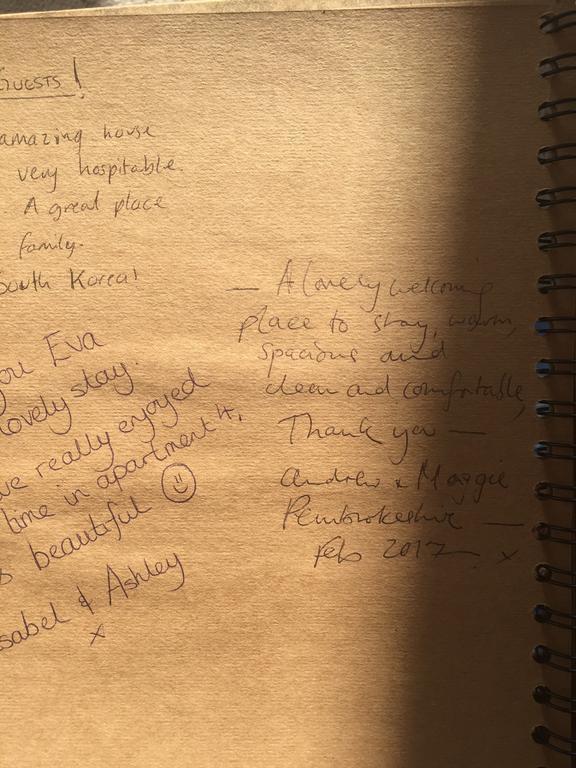 GUESTS!
amazing house
very hospitable.
A great place
family.
South Korea!
you Eva
lovely stay.
we really enjoyed
time in apartment 4.
beautiful
Isabel & Ashley
x
— A lovely welcoming
place to stay, warm,
spacious and
clean and comfortable,
Thank you —
Andrew & Maggie
Pembrokeshire —
Feb 2017 x